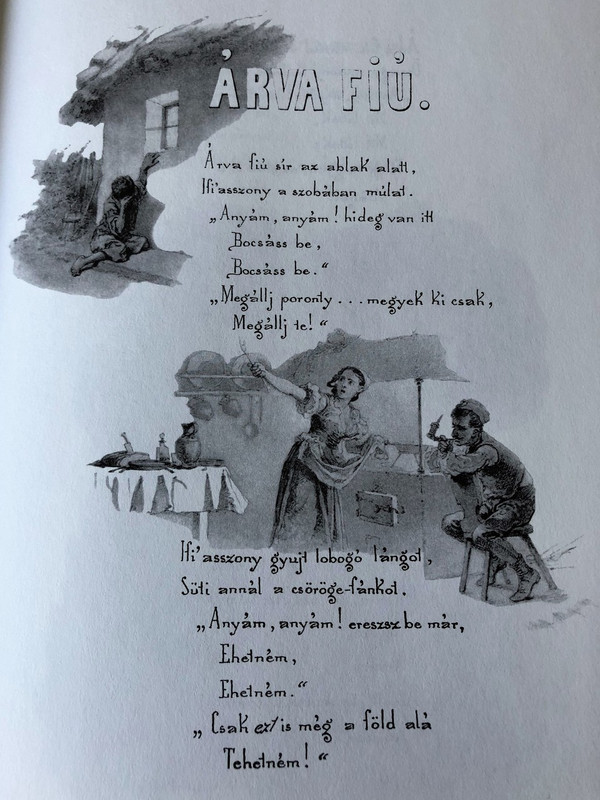 ÁRVA FIÚ.
Árva fiú sír az ablak alatt,
Ifi'asszony a szobában múlat.
„Anyám, anyám! hideg van itt
Bocsáss be,
Bocsáss be.“
„Megállj poronty . . . megyek ki csak,
Megállj te!“
Ifi'asszony gyujt lobogó lángot,
Süti annál a csöröge-fánkot.
„Anyám, anyám! ereszsz be már,
Ehetném,
Ehetném.“
„Csak ezt is még a föld alá
Tehetném!“